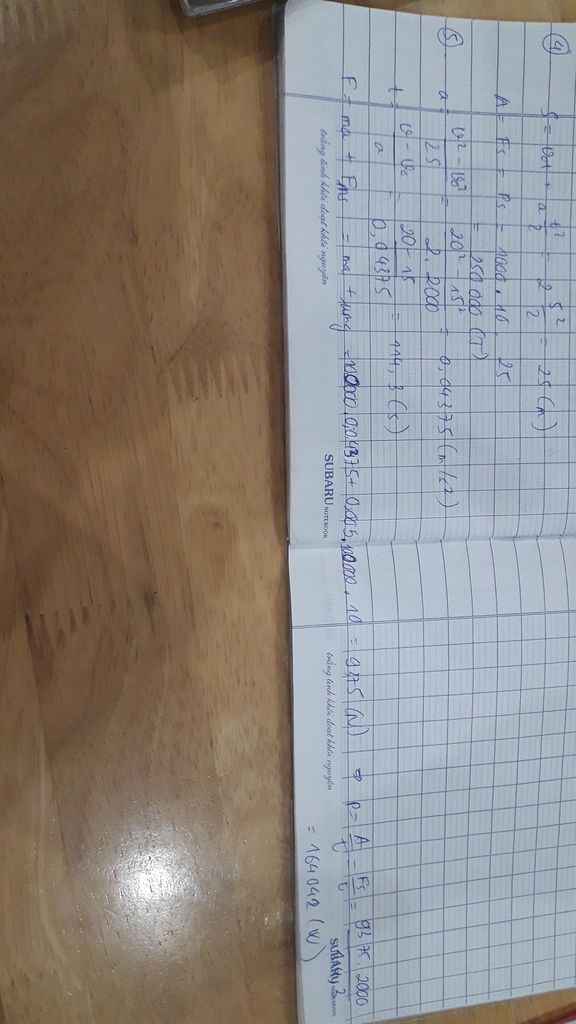 ④ S = v₀t + a t²/2 = 2 5²/2 = 25 (m)
A = Fs = Ps = 1000.10.25
= 250 000 (J)
⑤ a = v² - v₀²/2S = 20² - 15²/2.2000 = 0,04375 (m/s²)
t = v - v₀/a = 20 - 15/0,04375 = 114,3 (s)
F = ma + Fms = ma + μmg = 100000.0,04375 + 0.005.100000.10 = 9375 (N) ⇒ P = A/t = Fs/t = 9375.2000
= 164042 (W)
thắng tinh khôi đoạt khôi nguyên
SUBARU NOTEBOOK
thắng tinh khôi đoạt khôi nguyên
SUBARU